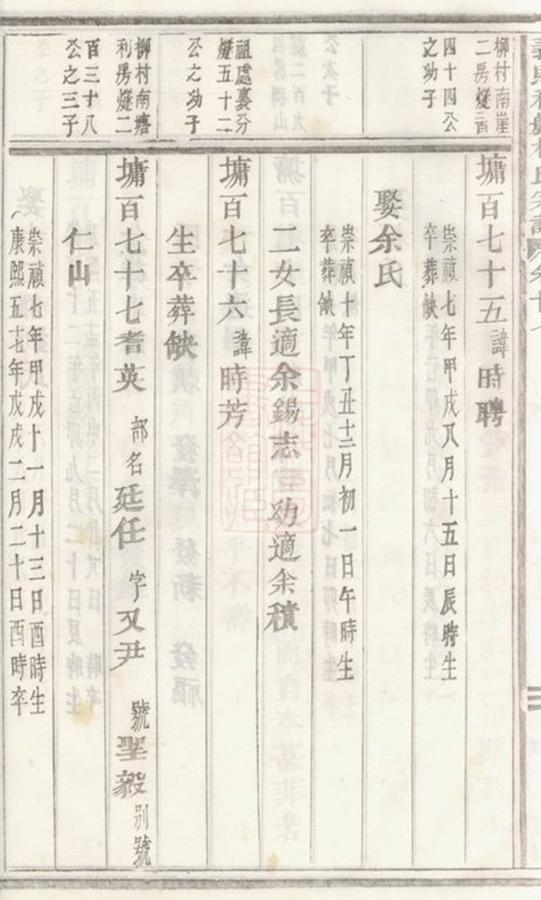 柳村南崖
二房㷆二百
四十四公
之幼子
墉百七十五諱時聘
崇禎七年甲戌八月十五日辰時生
卒葬缺
娶余氏
崇禎十年丁丑十二月初一日午時生
卒葬缺
二女長適余錫志 幼適余積
祖處裏分
㷆五十二
公之幼子
墉百七十六諱時芳
生卒葬缺
柳村南塘
利房㷆二
百三十八
公之三子
墉百七十七耆英 部名廷任 字又尹 號聖毅 別號
仁山
崇禎七年甲戌十一月十三日酉時生
康熙五十七年戊戌二月二十日酉時卒